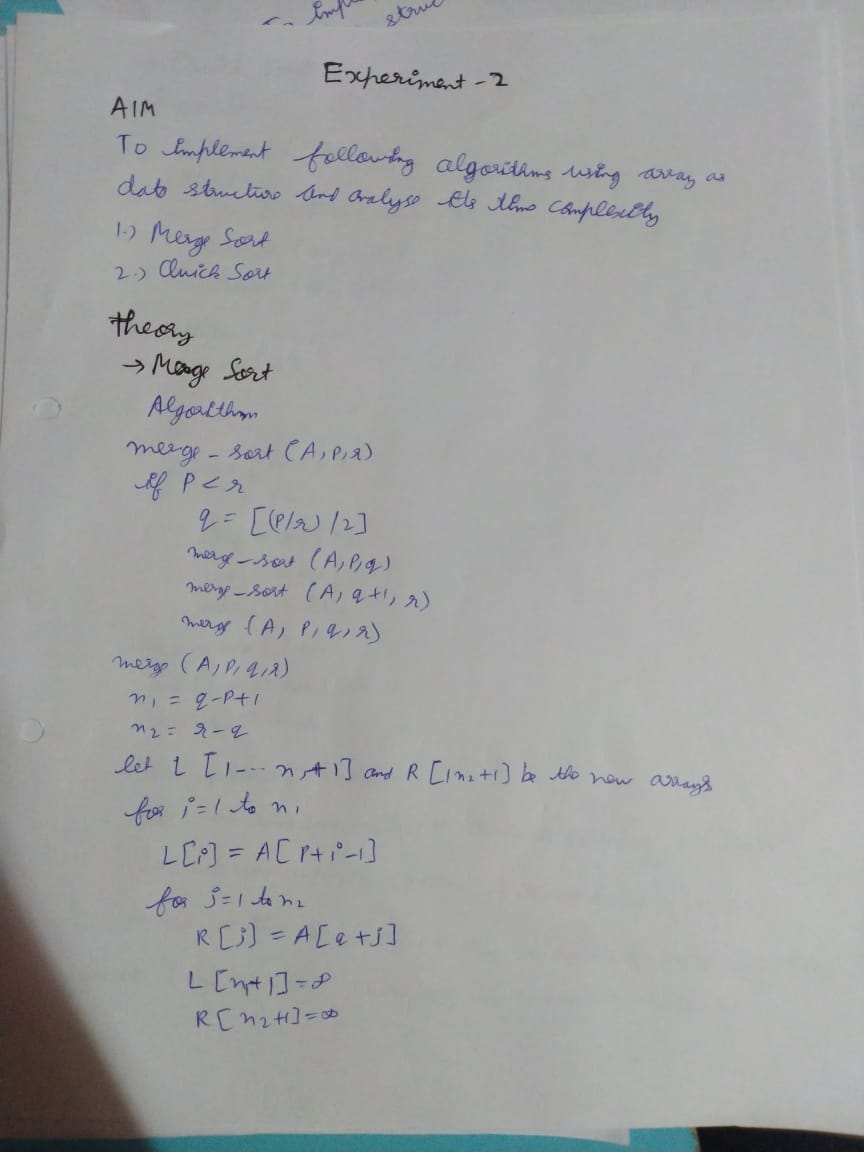 Experiment - 2
AIM
To implement following algorithms using array as
data structure and analyse its time complexity
1.) Merge Sort
2.) Quick Sort
Theory
→ Merge Sort
Algorithm
merge - sort (A, P, r)
if P < r
q = [(P/r) /2]
merge - sort (A, P, q)
merge - sort (A, q+1, r)
merge (A, P, q, r)
merge (A, P, q, r)
n1 = q-P+1
n2 = r-q
let L [1--- n1+1] and R [1n2+1] be the new arrays
for i=1 to n1
L[i] = A[P+i-1]
for j=1 to n2
R[j] = A[q+j]
L [n1+1] = ∞
R[n2+1] = ∞